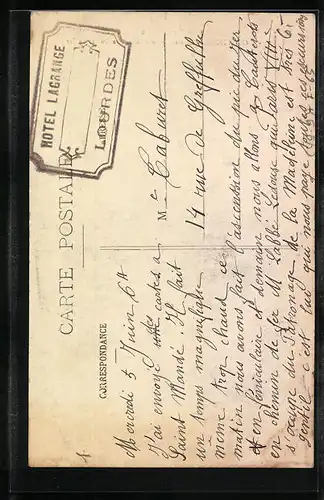 HOTEL LAGRANGE
LOURDES
CARTE POSTALE
CORRESPONDANCE
Mercredi 5 Juin 6h
J'ai envoyé des cartes à
Saint Mandé. Il fait
un temps magnifique
même trop chaud ce
matin nous avons fait l'ascension du pic du Jer
en funiculaire et demain nous allons à Cauterets
en chemin de fer M. l'abbé qui
s'occupe du Patronage de la Madeleine est très
gentil c'est lui qui nous paye toutes
Me Caburet
14 rue de Greffulhe